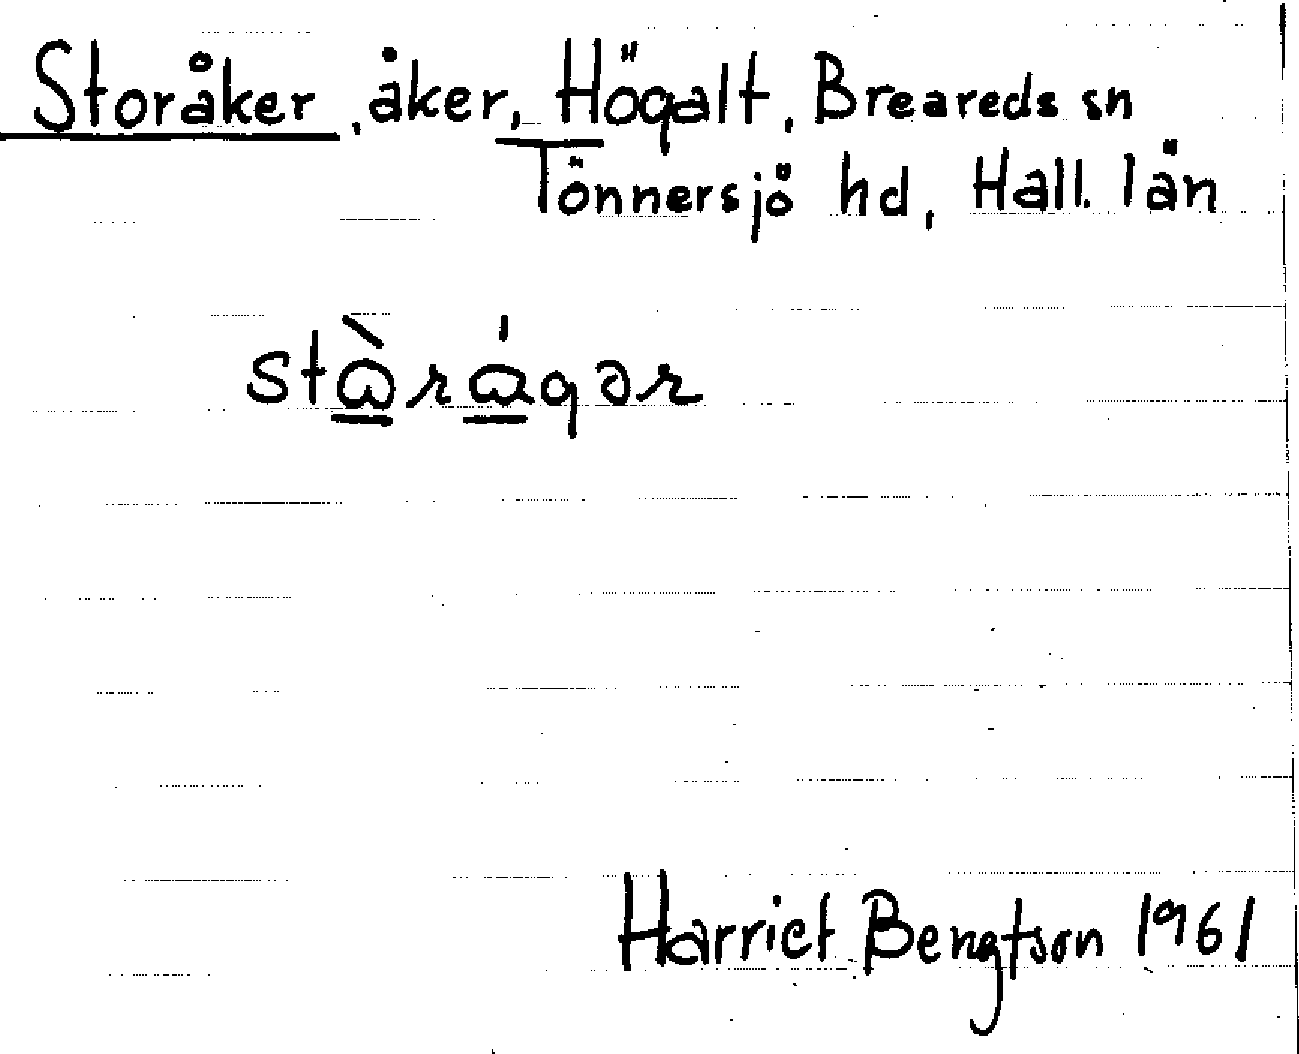 Storåker, åker, Högalt, Breareds sn
Tönnersjö hd, Hall. län
stɷ̠̀rɷ̠́gər
Harriet Bengtson 1961